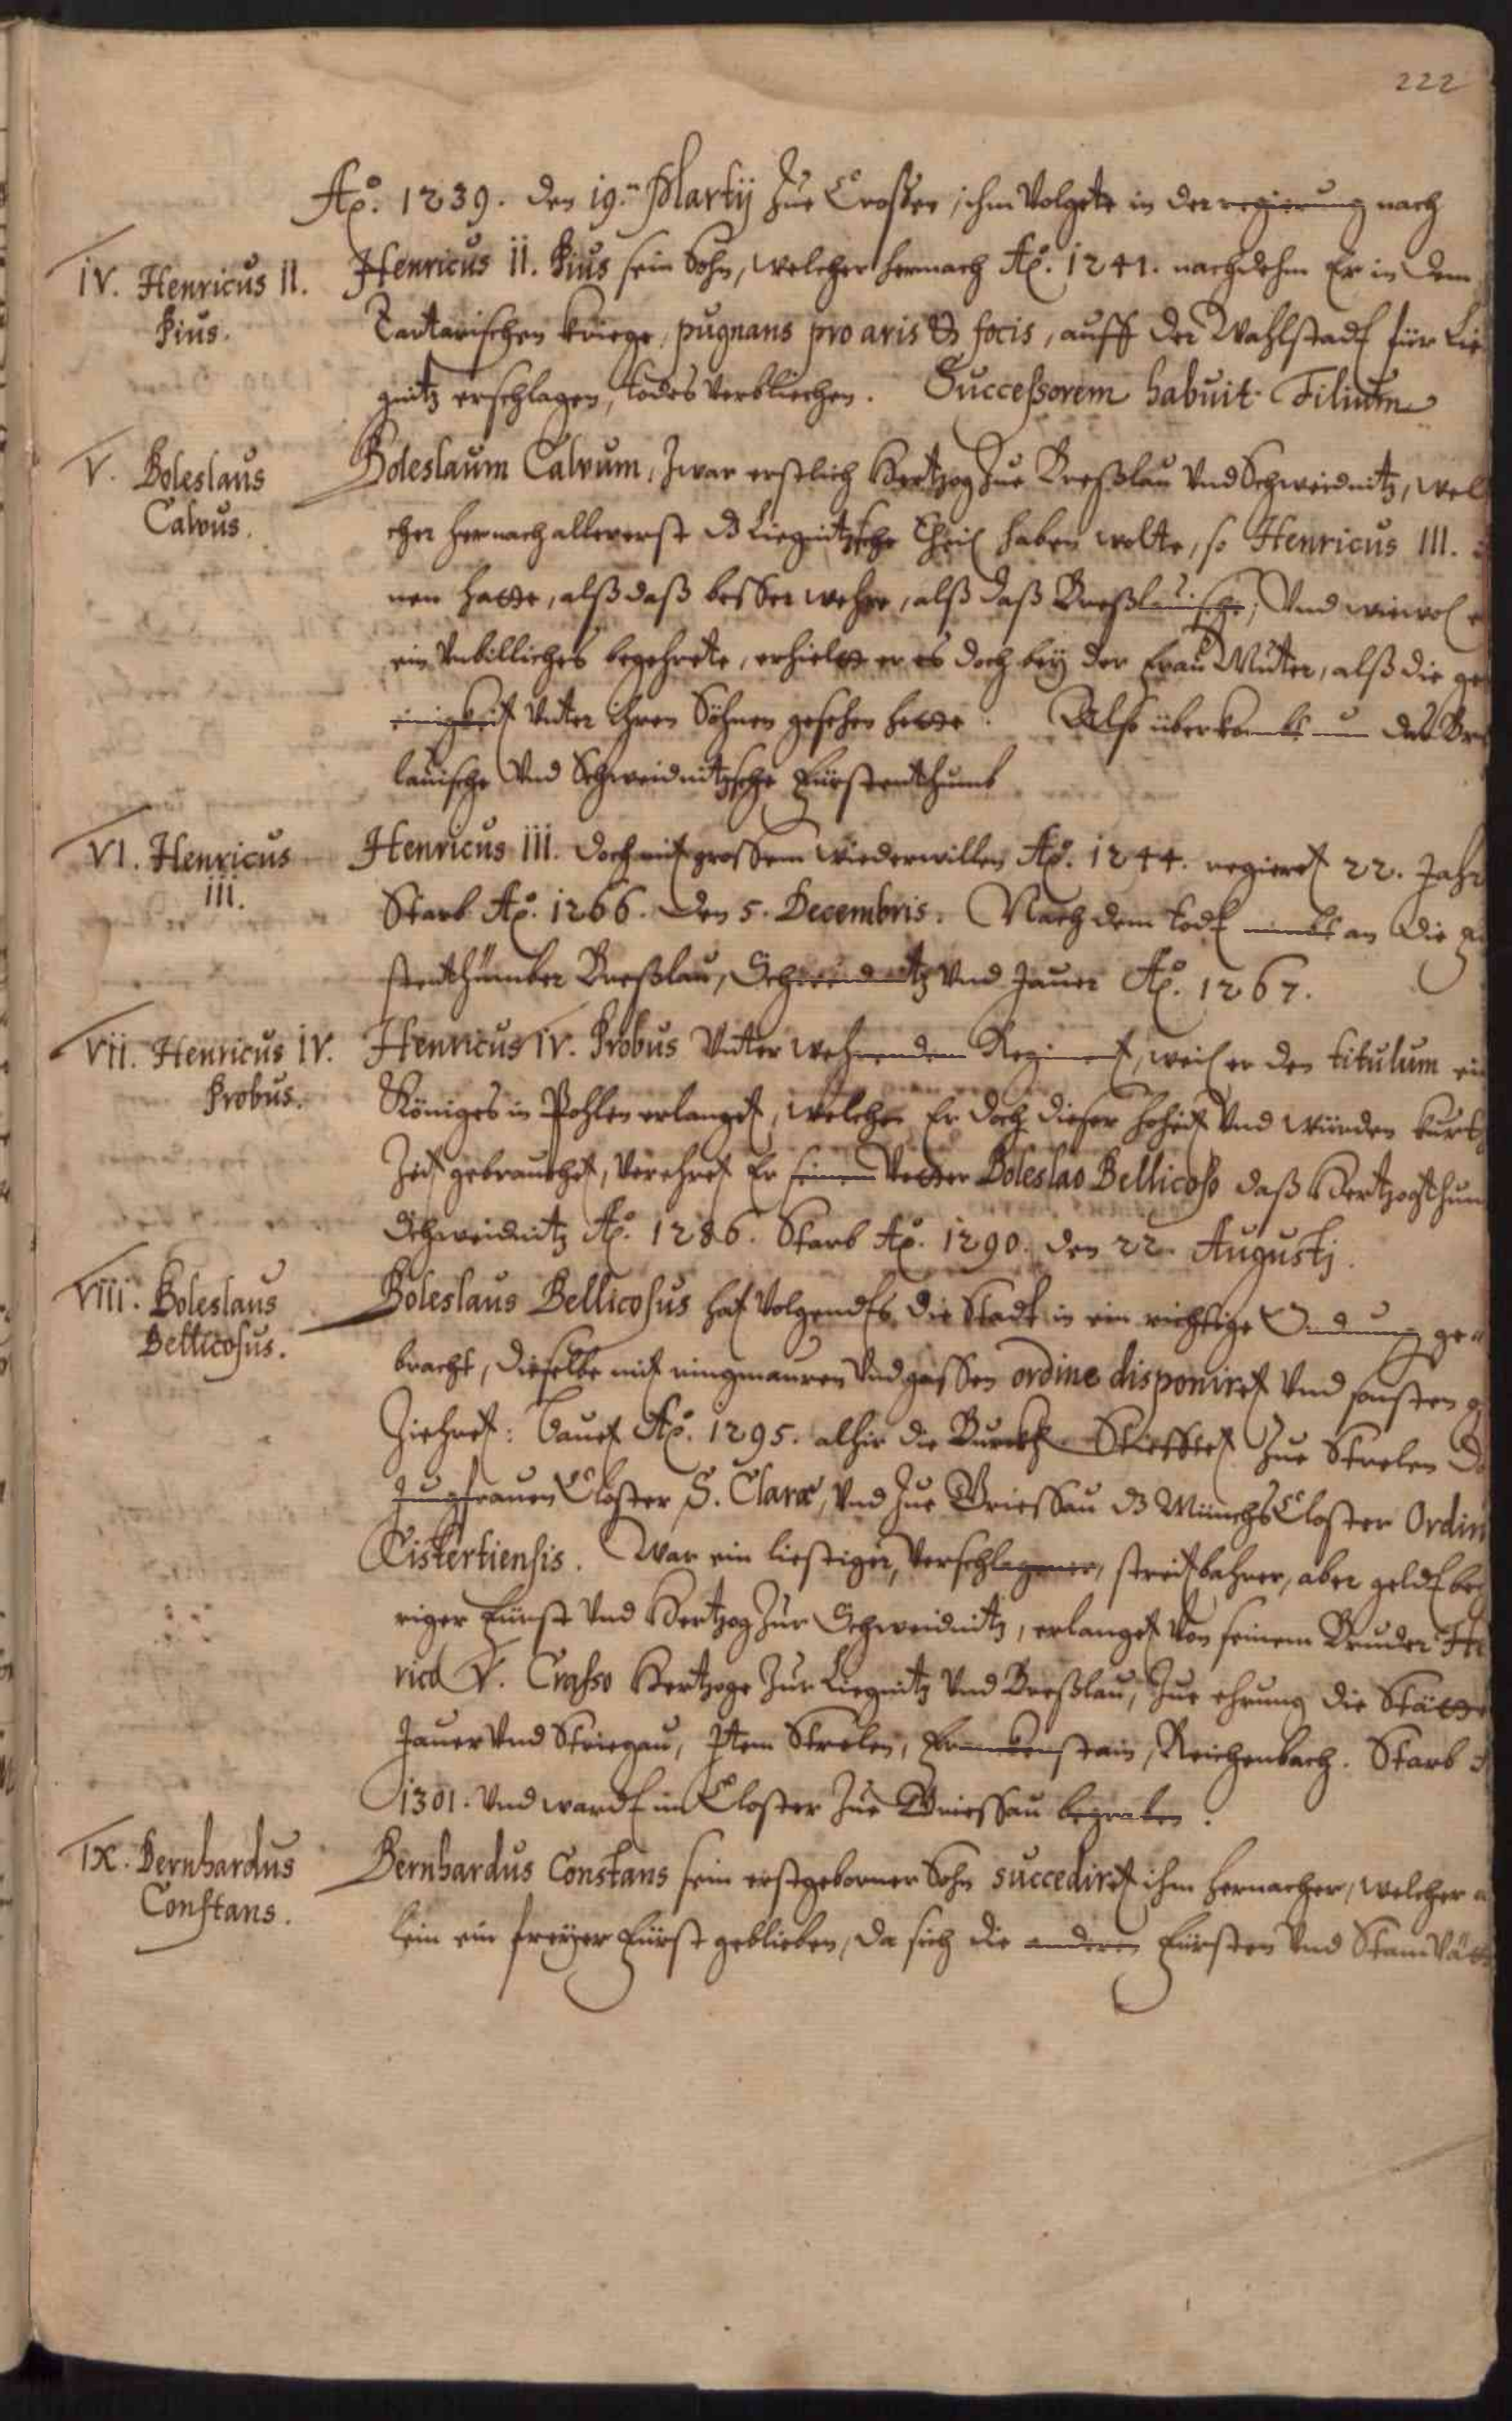 222
Ao. 1239. den 19.n Martij zue Crossen, ihm Volgete in der regierung nach
IV. Henricus II.
Pius.
Henricus II. Pius sein Sohn, welcher hernach Ao. 1241. nachdehm Er in dem
Tartarischen kriege, pugnans pro aris & focis, auff der Wahlstadt für Lie
gnitz erschlagen, todes verbliechen. Successorem habuit Filium
V. Boleslaus
Calvus.
Boleslaum Calvum, zwar erstlich Hertzog zue Breßlau Vnd Schweidnitz, wel
cher hernach allererst dz Liegnitzsche Theil haben wolte, so Henricus III.
nen hatte, alß daß besser wehre, alß daß Breßlauische, Vnd wiewol
ein Vnbilliches begehrete, erhielt er es doch bey der Frau Mutter, alß die
einigkeit Vnter ihren Söhnen gesehen hette. Also überkambt nun das Bre
lauische Vnd Schweidnitzsche Fürstenthumb
VI. Henricus
III.
Henricus III. doch mit grossem wiederwillen Ao. 1244. regieret 22. Jahr
Starb Ao. 1266. den 5. Decembris. Nach dem todt nimbt an die
stenthümber Breßlau, Schweidnitz Vnd Jauer Ao. 1267.
VII. Henricus IV.
Probus.
Henricus IV. Probus Vnter wehrendem Regiment, weil er den titulum ei
Königes in Pohlen erlanget, welcher Er doch dieser hoheit Vnd würden kurtz
Zeit gebrauchet, Verehret Er seinem Vetter Boleslao Bellicoso daß Hertzogthum
Schweidnitz Ao. 1286. Starb Ao. 1290. den 22. Augustj.
VIII. Boleslaus
Bellicosus.
Boleslaus Bellicosus hat Volgendts die Stadt in ein richtige Ordnung ge-
bracht, dieselbe mit ringmauren Vnd gassen ordine disponiret Vnd sonsten
Ziehret: Bauet Ao. 1295. alhir die Burck Stifftet zue Strelen
Jungfrauen Closter S. Claræ, Vnd zue Griessau dz Münchs Closter Ordin
Cistertiensis. War ein listiger, Verschlagener, streitbahrer, aber geldt be
riger Fürst Vnd Hertzog zur Schweidnitz, erlanget Von seinem Bruder He
rico V. Crasso Hertzoge zur Liegnitz Vnd Breßlau, zue ehrung die Stätte
Jauer Vnd Striegau, Item Strelen, Franckenstain, Reichenbach. Starb
1301. Vnd wardt im Closter zue Griessau begraben.
IX. Bernhardus
Constans.
Bernhardus Constans sein erstgeborner Sohn succediret ihm hernacher, welcher
lein ein freyer Fürst geblieben, da sich die anderen Fürsten Vnd Stam Vätt